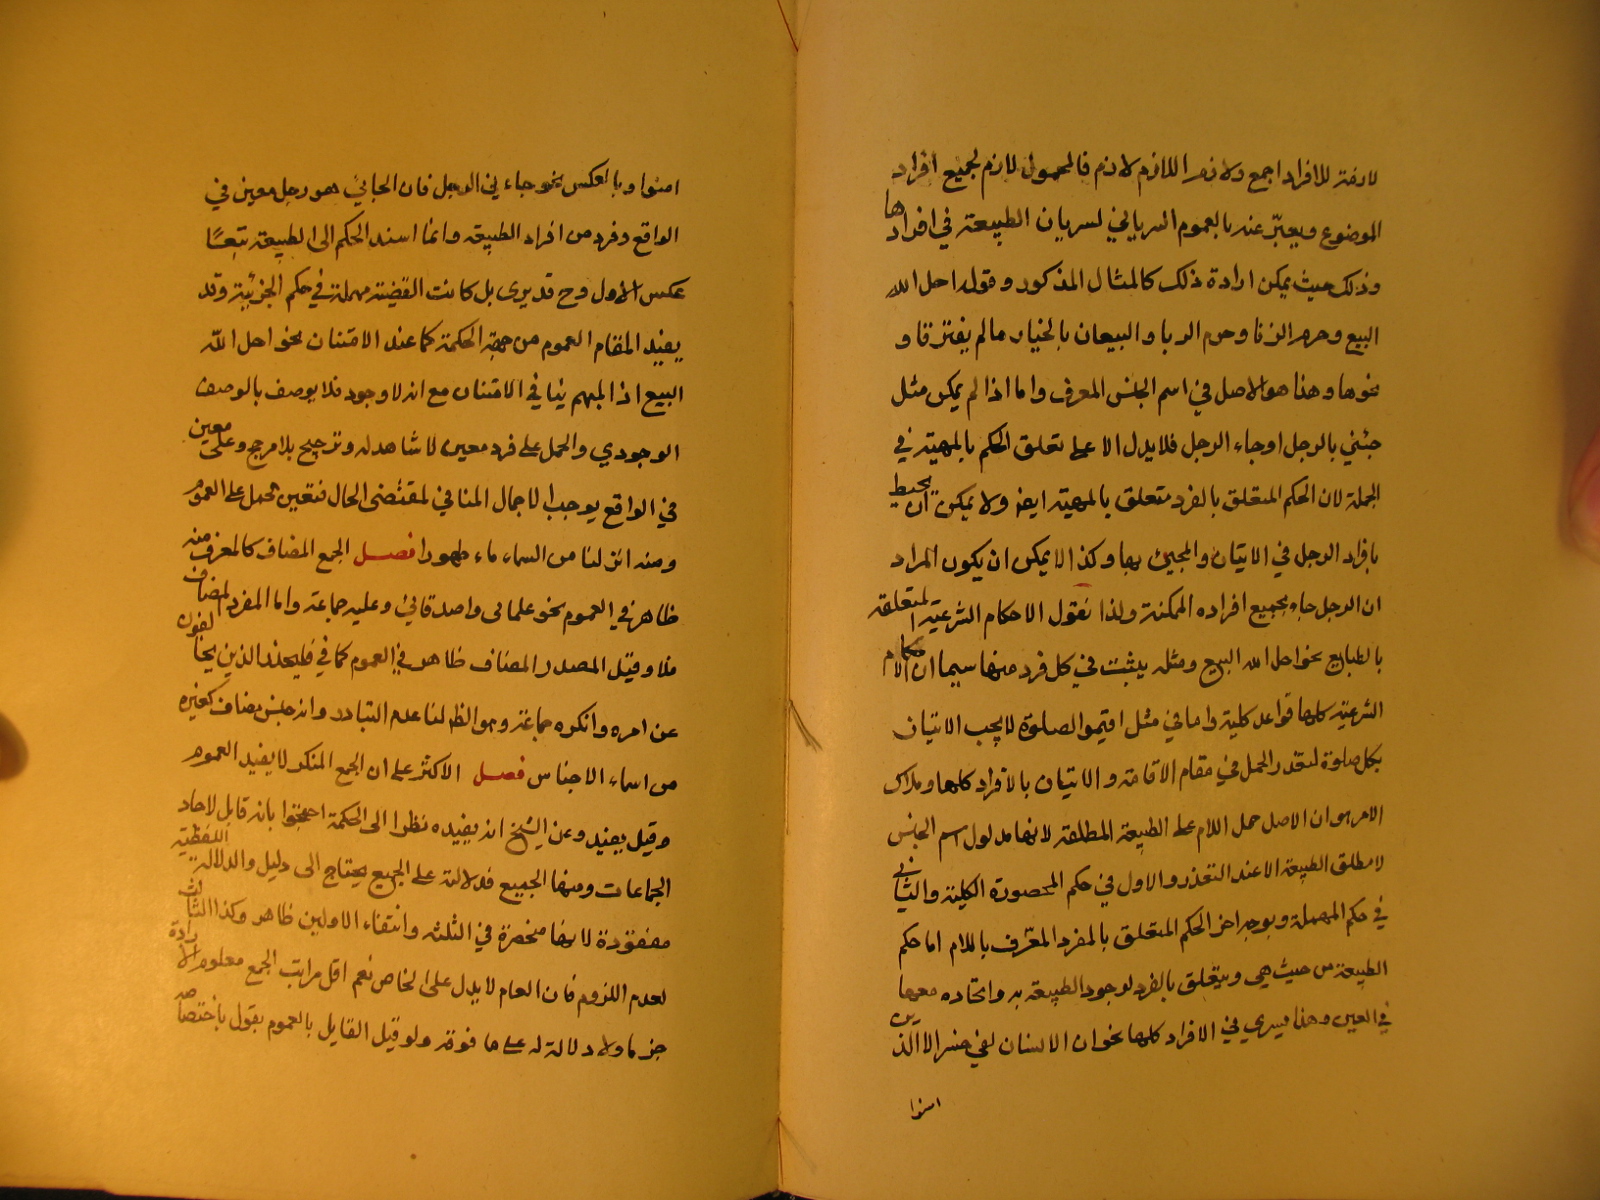 لازمة للافراد اجمع ولازم اللازم لازم فالمحمول لازم لجميع افراد
الموضوع ويعبّر عنه بالعموم السرياني لسريان الطبيعة في افرادها
وذلك حيث يمكن ارادة ذلك كالمثال المذكور وقوله احل الله
البيع وحرم الزنا وحرم الربا والبيعان بالخيار مالم يفترقا و
نحوها وهذا هو الاصل في اسم الجنس المعرف واما اذا لم يمكن مثل
جئني بالرجل او جاء الرجل فلا يدل الا على تعلق الحكم بالمهية في
الجملة لان الحكم المتعلق بالفرد متعلق بالمهية ايضا ولا يمكن ان يحيط
بافراد الرجل في الاتيان والمجيئ بها وكذا لا يمكن ان يكون المراد
ان الرجل جاء بجميع افراده الممكنة ولذا نقول الاحكام الشرعية المتعلقة
بالطبايع نحو احل الله البيع ومثله يثبت في كل فرد منها سيما ان الاحكام
الشرعية كلها قواعد كلية واما في مثل اقيموا الصلوة لا يجب الاتيان
بكل صلوة لتعذر الحمل في مقام الاقامة والاتيان بالافراد كلها وملاك
الامر هو ان الاصل حمل اللام على الطبيعة المطلقة لانها مدلول اسم الجنس
لا مطلق الطبيعة الا عند التعذر والاول في حكم المحصورة الكلية والثاني
في حكم المهملة وبوجه اخر الحكم المتعلق بالمفرد المعّرف باللام اما حكم
الطبيعة من حيث هي ويتعلق بالفرد لوجود الطبيعة به واتحاده معها
في العين وهذا يسري في الافراد كلها نحو ان الانسان لفي خسر الا الذين
امنوا
امنوا وبالعكس نحو جاء ني الرجل فان الجائي هو رجل معين في
الواقع وفرد من افراد الطبيعة وانما اسند الحكم الى الطبيعة تبعًا
عكس الاول وح قد يرى بل كانت القضية مهملة في حكم الجزئية وقد
يفيد المقام العموم من جهة الحكمة كما عند الامتنان نحو احل الله
البيع اذ المبهم ينافي الامتنان مع انه لا وجود فلا يوصف بالوصف
الوجودي والحمل على فرد معين لا شاهد له وترجيح بلا مرجح وعلى معين
في الواقع يوجب الاجمال المنافي لمقتضى الحال فتعين الحمل على العموم
ومنه انزلنا من السماء ماء طهورا فصل الجمع المضاف كالمعرف منه
ظاهر في العموم نحو علمائى واصدقائي وعليه جماعة واما المفرد المضاف
فلا وقيل المصدر المضاف ظاهر في العموم كما في فليحذر الذين يخالفون
عن امره وانكره جماعة وهو الظ لنا عدم التبادر وانه جنس مضاف كغيره
من اسماء الاجناس فصل الاكثر على ان الجمع المنكر لا يفيد العموم
وقيل يفيد وعن الشيخ انه يفيده نظرا الى الحكمة احتجوا بانه قابل لاحاد
الجماعات ومنها الجميع فدلالته على الجميع يحتاج الى دليل والدلالة اللفظية
مفقودة لانها منحصرة في الثلثة وانتفاء الاولين ظاهر وكذا الثالث
لعدم اللزوم فان العام لا يدل على الخاص نعم اقل مراتب الجمع معلوم الارادة
جزما ولا دلالة له على ما فوقه ولو قيل القايل بالعموم يقول باختصاصه